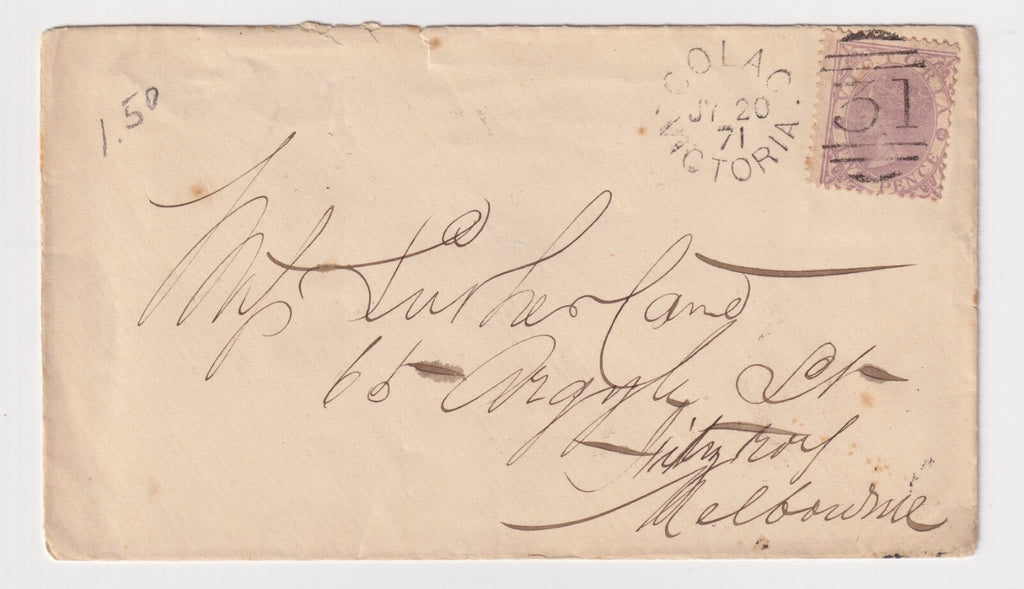 1.50
COLAC
JY 20
71
VICTORIA
VICTORIA
51
TWO PENCE
Miss Sutherland
65 Argyle St
Fitzroy
Melbourne